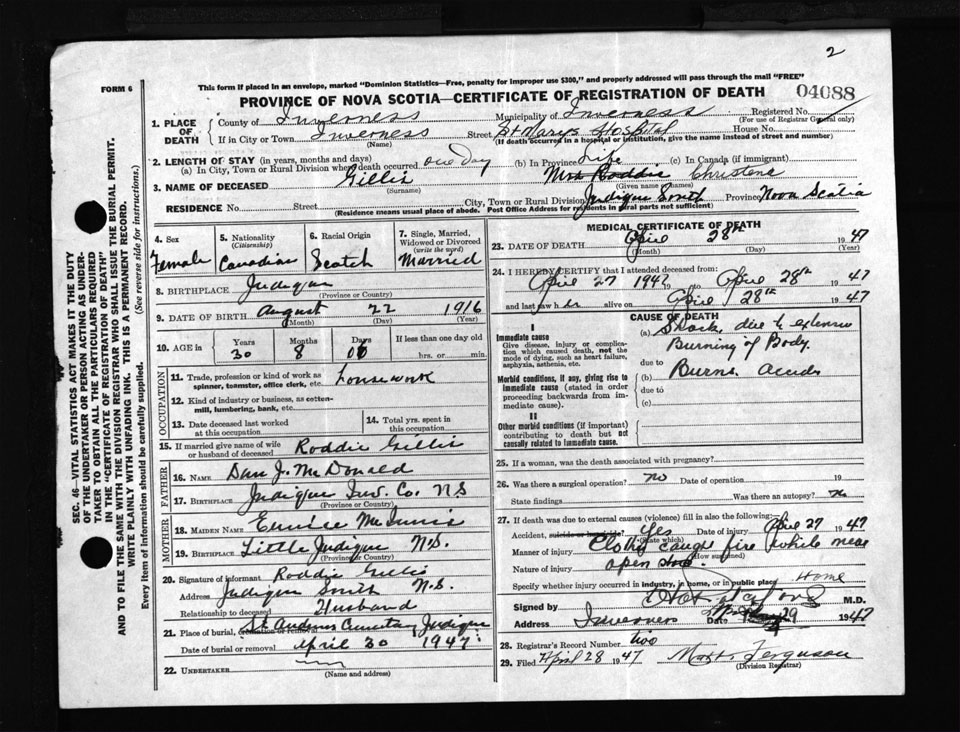 2
This form if placed in an envelope, marked "Dominion Statistics—Free, penalty for improper use $300," and properly addressed will pass through the mail "FREE"
FORM 6
PROVINCE OF NOVA SCOTIA—CERTIFICATE OF REGISTRATION OF DEATH
04088
1. PLACE OF DEATH
County of Inverness Municipality of Inverness Registered No.
(For use of Registrar General only)
If in City or Town Inverness Street St Marys Hospital House No.
(Name) (If death occurred in a hospital or institution, give the name instead of street and number)
2. LENGTH OF STAY (in years, months and days)
(a) In City, Town or Rural Division where death occurred one day (b) In Province Life (c) In Canada (if immigrant)
3. NAME OF DECEASED Gillis Mrs Roddie Christene
(Surname) (Given name (names)
RESIDENCE No. Street City, Town or Rural Division Judique South Province Nova Scotia
(Residence means usual place of abode. Post Office Address for residents in rural parts not sufficient)
4. Sex
Female
5. Nationality
(Citizenship)
Canadian
6. Racial Origin
Scotch
7. Single, Married, Widowed or Divorced
(write the word)
Married
8. BIRTHPLACE Judique
(Province or Country)
9. DATE OF BIRTH August 22 1916
(Month) (Day) (Year)
10. AGE in
Years Months Days If less than one day old
30 8 hrs. or min.
OCCUPATION
11. Trade, profession or kind of work as spinner, teamster, office clerk, etc. housework
12. Kind of industry or business, as cotton-mill, lumbering, bank, etc.
13. Date deceased last worked at this occupation
14. Total yrs. spent in this occupation
15. If married give name of wife or husband of deceased Roddie Gillis
FATHER
16. NAME Dan J. McDonald
17. BIRTHPLACE Judique Inv. Co. N S
(Province or Country)
MOTHER
18. MAIDEN NAME Eunice McInnis
19. BIRTHPLACE Little Judique N.S.
(Province or Country)
20. Signature of informant Roddie Gillis
Address Judique South N.S.
Relationship to deceased Husband
21. Place of burial, cremation or removal St. Andrews Cemetary Judique
Date of burial or removal April 30 1947
22. UNDERTAKER
MEDICAL CERTIFICATE OF DEATH
23. DATE OF DEATH April 28th 1947
(Month) (Day) (Year)
24. I HEREBY CERTIFY that I attended deceased from:
April 27 1947 to April 28th 47
and last saw her alive on April 28th 1947
CAUSE OF DEATH
I
Immediate cause
Give disease, injury or complication which caused death, not the mode of dying, such as heart failure, asphyxia, asthenia, etc.
(a) Shock due to extensive
Burning of Body.
due to
Morbid conditions, if any, giving rise to immediate cause (stated in order proceeding backwards from immediate cause).
(b) Burns
due to
(c)
II
Other morbid conditions (if important) contributing to death but not causally related to immediate cause.
25. If a woman, was the death associated with pregnancy?
26. Was there a surgical operation? no Date of operation 19
State findings Was there an autopsy? No
27. If death was due to external causes (violence) fill in also the following:
Accident, suicide or homicide? Yes Date of injury April 27 1947
(State which)
Manner of injury Clothes caught fire while near
(How sustained)
Nature of injury open
Specify whether injury occurred in industry, in home, or in public place Home
Signed by M.D.
Address Inverness Date 29 1947
28. Registrar's Record Number two
29. Filed April 28 1947 Ferguson
(Division Registrar)
SEC. 46—VITAL STATISTICS ACT MAKES IT THE DUTY
OF THE UNDERTAKER OR PERSON ACTING AS UNDER-
TAKER TO OBTAIN ALL THE PARTICULARS REQUIRED
IN THE "CERTIFICATE OF REGISTRATION OF DEATH"
AND TO FILE THE SAME WITH THE DIVISION REGISTRAR WHO SHALL ISSUE THE BURIAL PERMIT.
WRITE PLAINLY WITH UNFADING INK. THIS IS A PERMANENT RECORD.
Every item of information should be carefully supplied. (See reverse side for instructions.)